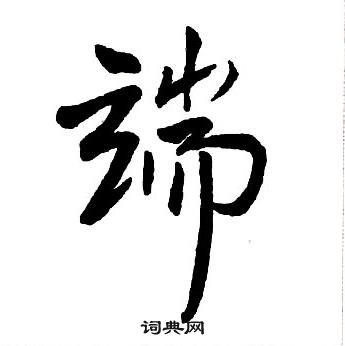 端
词典网